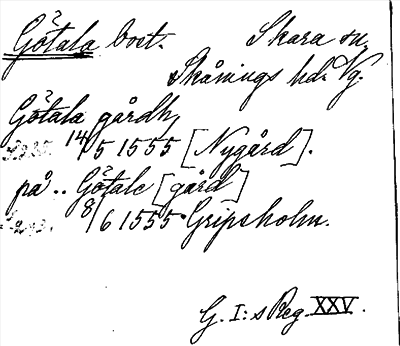 Götala bost. Skara sn,
Skånings hd. Vg.
Götala gårdh,
14/5 1555 [Nygård].
på.. Götale [gård]
8/6 1555 Gripsholm.
G. I:s Reg. XXV.